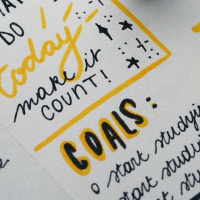 DO
today
make it
COUNT!
GOALS:
start studying
start